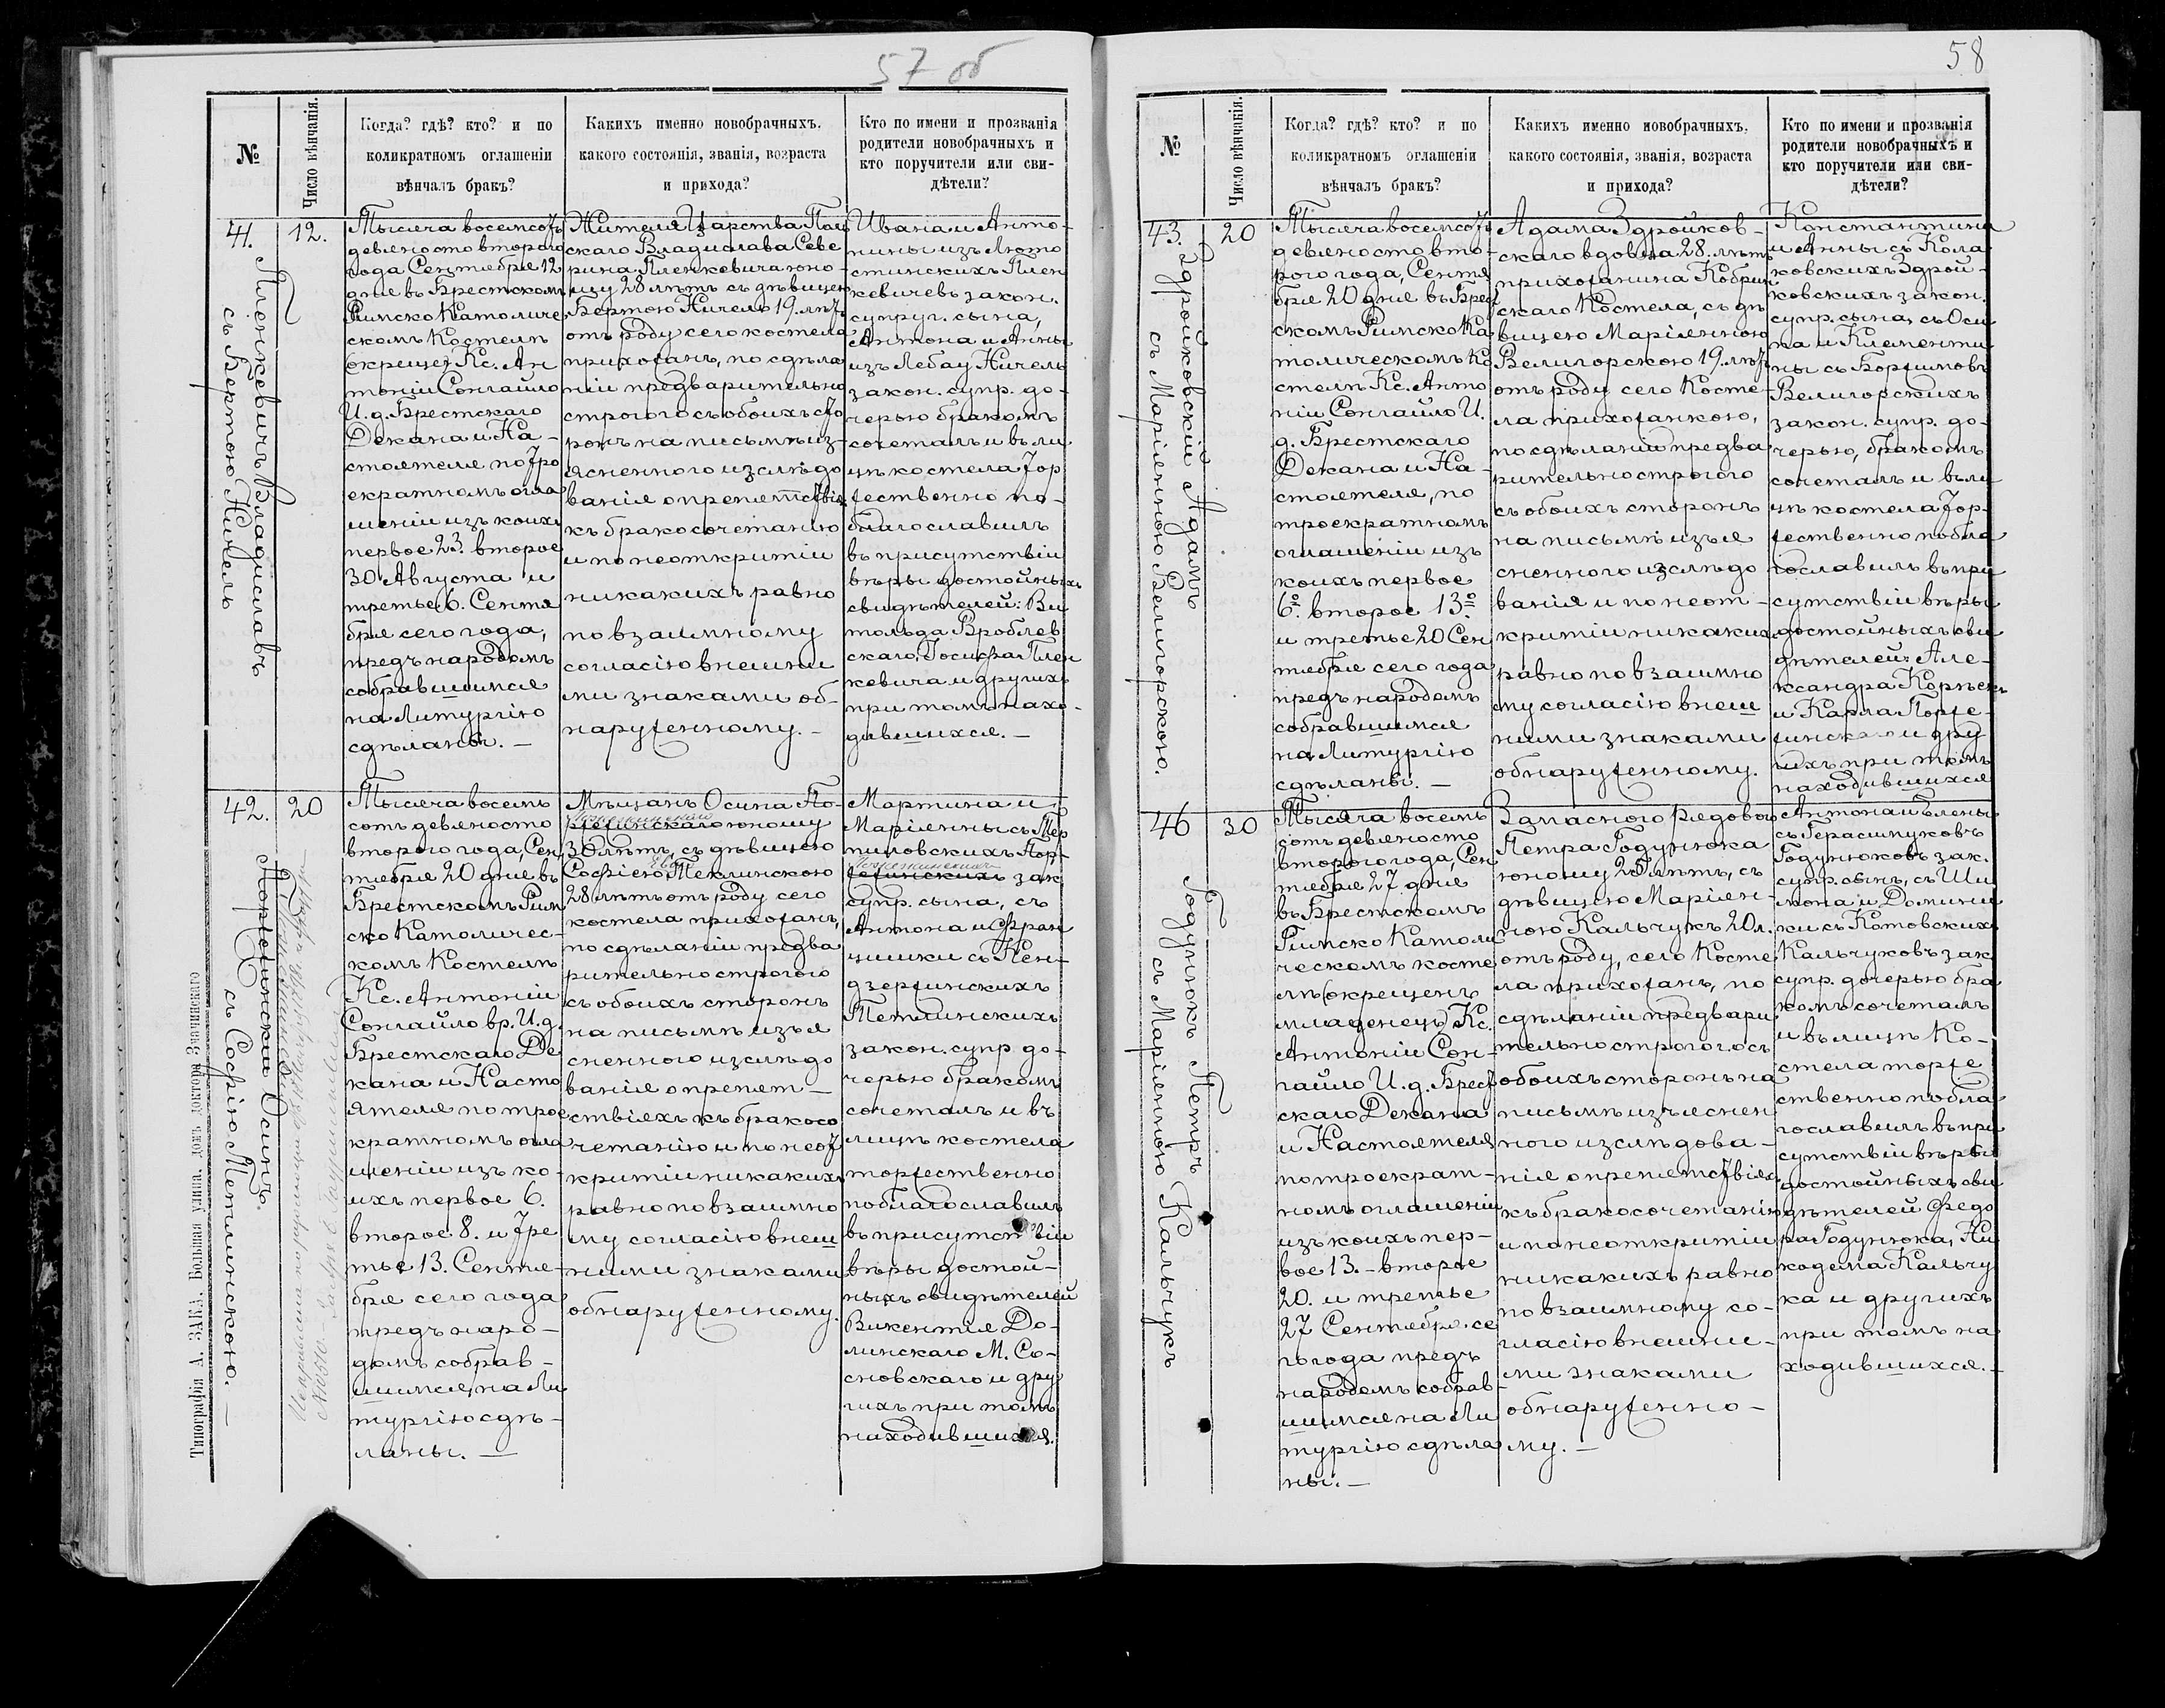 57 об
№
Число вѣнчанія.
Когда? гдѣ? кто? и по
коликратномъ оглашеніи
вѣнчалъ бракъ?
Какихъ именно новобрачныхъ,
какого состоянія, званія, возраста
и прихода?
Кто по имени и прозванія
родители новобрачныхъ и
кто поручители или сви-
дѣтели?
41.
Пленкевичъ Владиславъ
съ Бертою Ничель
12.
Тысяча восемсотъ
девяносто втораго
года Сентября 12
дня въ Брестскомъ
Римско Католиче
скомъ Костелѣ
Кс. Ан
тоній Сонгайло
И. д. Брестскаго
Декана и На-
стоятеля по тро
екратномъ огла
шеніи изъ коихъ
первое 23. второе
30 Августа и
третье 6. Сентя
бря сего года,
предъ народомъ
собравшимся
на Литургію
сдѣланы. —
Жителя Царства Поль
скаго Владислава Севе
рина Пленкевича юно
шу 28 лѣтъ съ дѣвицею
Бертою Ничель 19. лѣтъ
отъ роду сего костела
прихожанъ, по сдѣла
ніи предварительно
строгого съ обоихъ сто
ронъ на письмѣ из-
ясненного изслѣдо
ванія о препятствіях
къ бракосочетанію
и по неоткритіи
никакихъ равно
по взаимному
согласію внешни
ми знаками об-
наруженному. —
Ивана и Анто-
нины изъ Люто
стинскихъ Плен
кевичевъ закон.
супруг. сына,
Антона и Анны
изъ Лебау Ничель
закон. супр. до-
черью бракомъ
сочеталъ и въ ли
цѣ костела тор
жественно по-
благославилъ
въ присутствіи
вѣры достойныхъ
свидѣтелей: Ви
тольда Вроблев
скаго, Іосифа Плен
кевича и другихъ
при томъ нахо-
дившихся. —
42.
Поржезинскій Осипъ.
съ Софіею Теплинскою. —
20
Тысяча восемь
сотъ девяносто
второго года, Сен
тября 20 дня въ
Брестскомъ Рим
ско Католичес-
комъ Костелѣ
Кс. Антоній
Сонгайло вр. И. д.
Брестскаго Де
кана и Насто
ятеля по трое
кратномъ огла
шеніи изъ ко-
ихъ первое 6.
второе 8. и тре
тье 13. Сентя-
бря сего года
предъ наро-
домъ собрав-
шимся на Ли
тургію сдѣ-
ланы. —
Мѣщанъ Осипа По-
ржезинскаго юношу
30 лѣтъ, съ дѣвицею
Софіею Теплинскою
28 лѣтъ отъ роду сего
костела прихожанъ,
по сдѣланіи предва
рительно строгого
съ обоихъ сторонъ
на письмѣ изъя
сненного изслѣдо
ванія о препят-
ствіяхъ къ бракосо
четанію и по неот
критіи никакихъ
равно по взаимно
му согласію внеш
ними знаками
обнаруженному.
Мартина и
Маріянны съ Тер
пиловскихъ Пор-
жезинскихъ зак.
супр. сына, съ
Антона и Фран
цишки съ Кен-
дзержинскихъ
Теплинскихъ
закон. супр. до-
черью бракомъ
сочеталъ и въ
лицѣ костела
торжественно
поблагославилъ
въ присутствіи
вѣры достой-
ныхъ свидѣтелей
Викентія До-
линскаго М. Со-
сновскаго и дру
гихъ при томъ
находившихся.
Типографія А. ЗАКА, Большая улица, домъ доктора Значинскаго
58
№
Число вѣнчанія.
Когда? гдѣ? кто? и по
коликратномъ оглашеніи
вѣнчалъ бракъ?
Какихъ именно новобрачныхъ,
какого состоянія, званія, возраста
и прихода?
Кто по имени и прозванія
родители новобрачныхъ и
кто поручители или сви-
дѣтели?
43.
Здройковскій Адамъ
съ Маріянною Велигорскою.
20
Тысяча восемсотъ
девяносто вто-
рого года, Сентя
бря 20 дня въ Брест
скомъ Римско Ка
толическомъ Ко
стелѣ Кс. Анто
ній Сонгайло И.
д. Брестскаго
Декана и На-
стоятеля, по
троекратномъ
оглашеніи изъ
коихъ первое
6º второе 13º
и третье 20 Сен
тября сего года
предъ народомъ
собравшимся
на Литургію
сдѣланы. —
Адама Здройков-
скаго вдовца 28. лѣтъ
прихожанина Кобрин
скаго Костела, съ дѣ
вицею Маріянною
Велигорскою 19. лѣтъ
отъ роду сего Косте-
ла прихожанкою,
по сдѣланіи предва
рительно строгого
съ обоихъ сторонъ
на письмѣ изъя
сненного изслѣдо
ванія и по неот-
критіи никакихъ
равно по взаимно
му согласію внеш
ними знаками
обнаруженному.
Константина
и Анны съ Кола
ковскихъ Здрой-
ковскихъ закон.
супр. сына, съ Оси
па и Клементи
ны съ Бортновъ
Велигорскихъ
закон. супр. до-
черью, бракомъ
сочеталъ и въ ли
цѣ костела тор-
жественно побла
гославилъ въ при
сутствіи вѣры
достойныхъ сви
дѣтелей: Але-
ксандра
и Карла Порже-
зинскаго и дру
гихъ при томъ
находившихся
46
Годунюкъ Петръ
съ Маріянною Кальчукъ
30
Тысяча восемь
сотъ девяносто
второго года, Сен
тября 27. дня
въ Брестскомъ
Римско Католи
ческомъ косте
лѣ (окрещенъ
младенецъ) Кс.
Антоній Сон-
гайло И. д. Брест
скаго Декана
и Настоятеля
по троекрат-
номъ оглашеніи
изъ коихъ пер-
вое 13. — второе
20. и третье
27 Сентября се
го года предъ
народомъ собрав-
шимся на Ли
тургію сдѣла
ны. —
Запасного рядового
Петра Годунюка
юношу 25 лѣтъ, съ
дѣвицею Маріян-
ною Кальчукъ 20 л.
отъ роду, сего Косте
ла прихожанъ, по
сдѣланіи предвари
тельно строгого съ
обоихъ сторонъ на
письмѣ изъяснен
ного изслѣдова-
нія о препятствіяхъ
къ бракосочетанію
и по неоткритіи
никакихъ равно
по взаимному со-
гласію внешни-
ми знаками
обнаруженно-
му. —
Антона и Елены
съ Герасимуковъ
Годунюковъ зак.
супр. сынъ, съ Ши
мона и Домини
ки съ Котовскихъ
Кальчуковъ зак.
супр. дочерью бра
комъ сочеталъ
и въ лицѣ Ко-
стела торже
ственно побла
гославилъ въ при
сутствіи вѣры
достойныхъ сви
дѣтелей Федо
ра Годунюка, Ни
кодема Кальчу
ка и другихъ
при томъ на
ходившихся. —